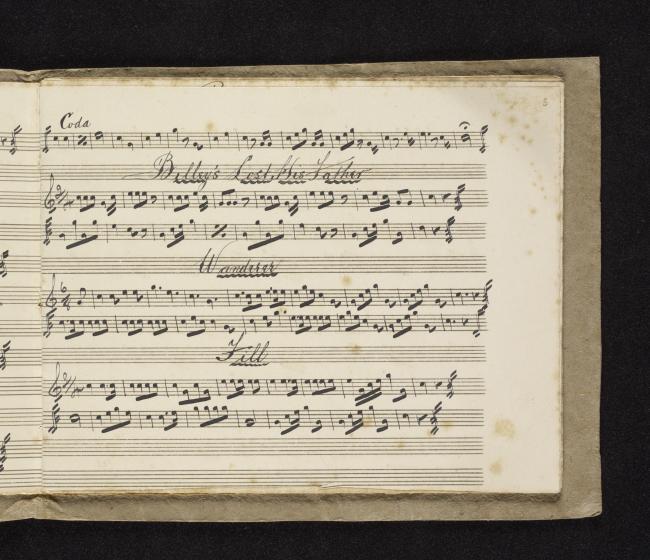 Coda
5
Billey's Lost His Father
Wanderer
Fill